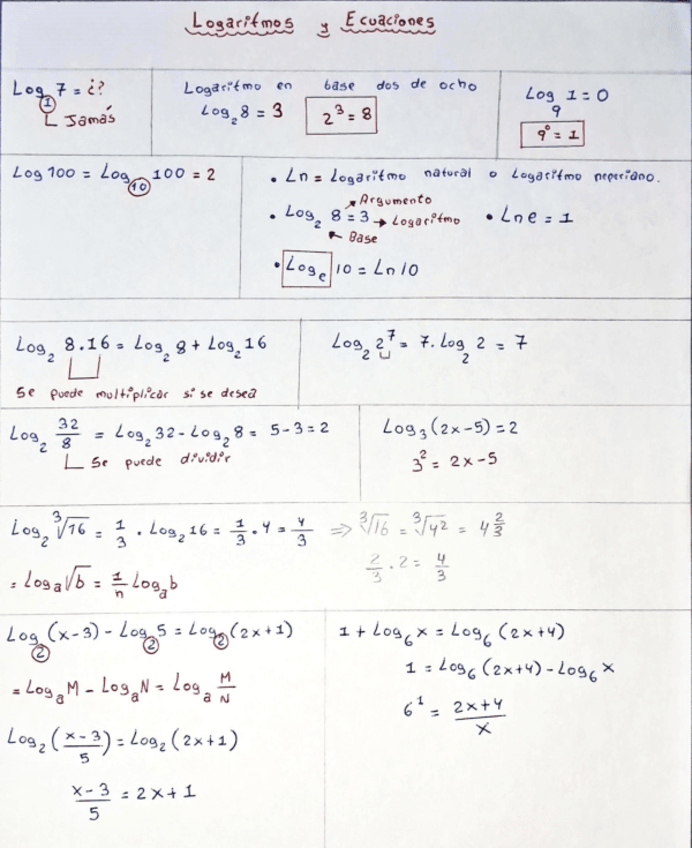 Logaritmos y Ecuaciones
Log₁ 7 = ¿?
Jamás
Logaritmo en base dos de ocho
Log₂ 8 = 3
2³ = 8
Log₉ 1 = 0
9⁰ = 1
Log 100 = Log₁₀ 100 = 2
• Ln = Logaritmo natural o Logaritmo neperiano.
Argumento
• Log₂ 8 = 3 → Logaritmo
Base
• Ln e = 1
• Logₑ 10 = Ln 10
Log₂ 8.16 = Log₂ 8 + Log₂ 16
Se puede multiplicar si se desea
Log₂ 2⁷ = 7. Log₂ 2 = 7
Log₂ 32/8 = Log₂ 32 - Log₂ 8 = 5 - 3 = 2
Se puede dividir
Log₃ (2x-5) = 2
3² = 2x-5
Log₂ ³√16 = 1/3 . Log₂ 16 = 1/3 . 4 = 4/3 ⇒ ³√16 = ³√4² = 4 2/3
2/3 . 2 = 4/3
= Logₐ √b = 1/n Logₐ b
Log₂ (x-3) - Log₂ 5 = Log₂ (2x+1)
= Logₐ M - Logₐ N = Logₐ M/N
Log₂ (x-3/5) = Log₂ (2x+1)
x-3/5 = 2x+1
1 + Log₆ x = Log₆ (2x+4)
1 = Log₆ (2x+4) - Log₆ x
6¹ = 2x+4/x